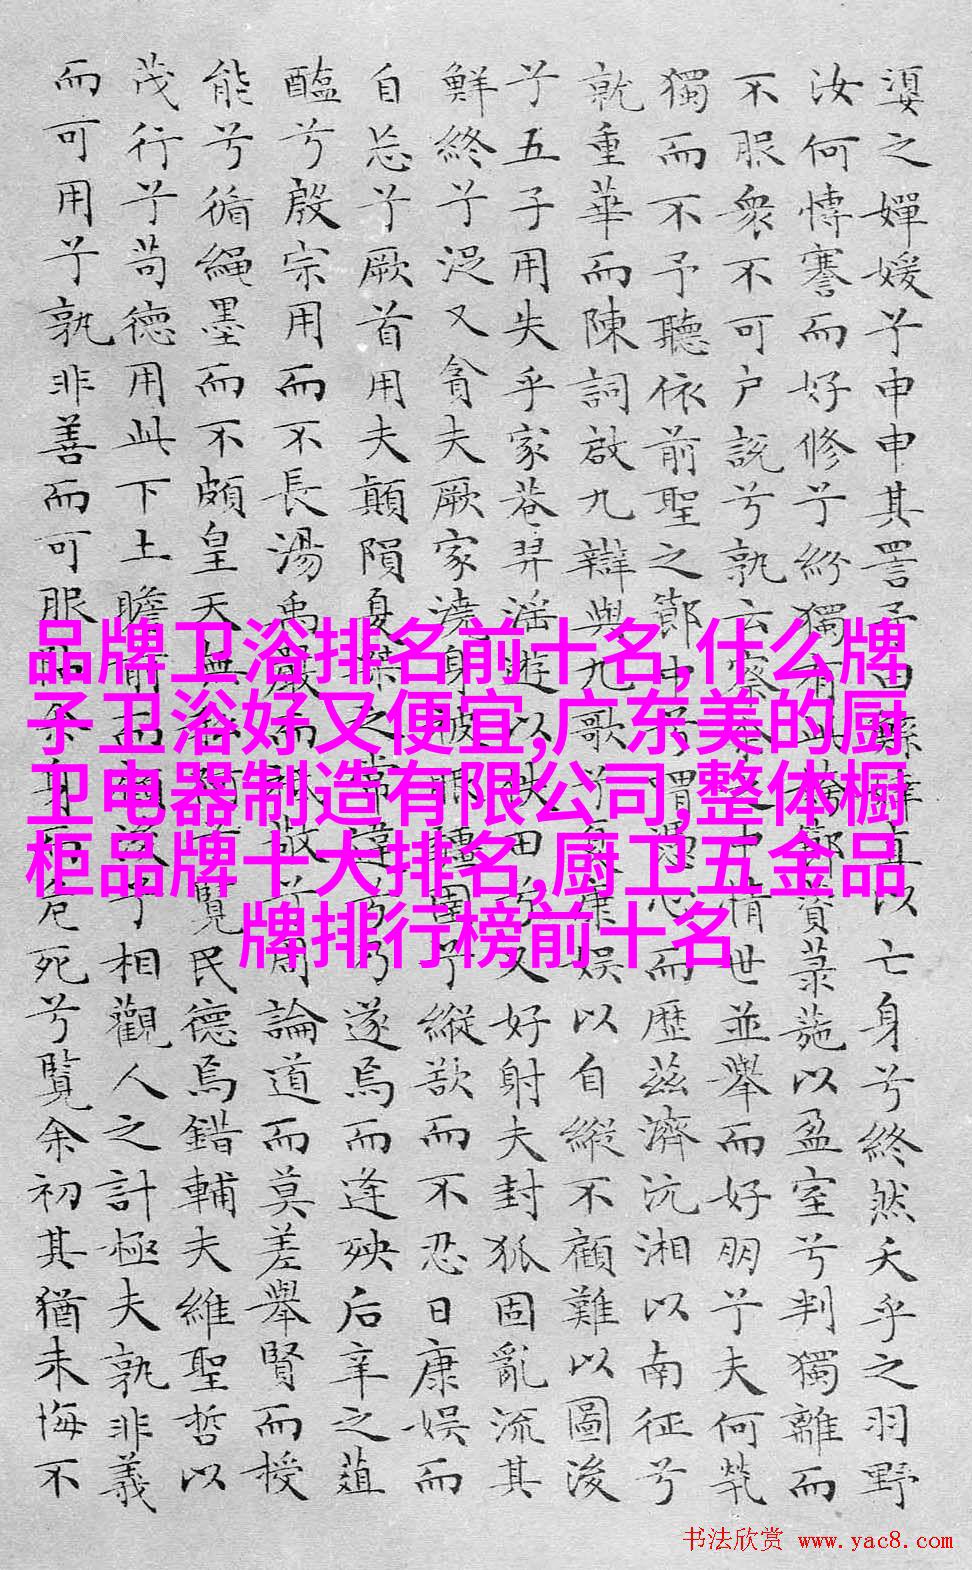 嬃之嬋媛兮申申其詈予曰鯀婞直以亡身兮終然夭乎之羽野
汝何博謇而好修兮紛獨有此姱節資菉葹以盈室兮判獨離而
不服衆不可户説兮孰云察余之中情世並舉而好朋兮夫何煢
獨而不予聽依前聖之節中兮喟憑心而歷兹濟沅湘以南征兮
就重華而陳詞啟九辯與九歌兮夏康娱以自縱不顧難以圖後
兮五子用失乎家巷羿淫遊以佚田兮又好射夫封狐固亂流其
鮮終兮浞又貪夫厥家澆身被服强圉兮縱欲而不忍日康娱而
自忘兮厥首用夫顛隕夏桀之常違兮乃遂焉而逢殃后辛之菹
醢兮殷宗用而不長湯禹嚴而祗敬兮周論道而莫差舉賢而授
能兮循繩墨而不頗皇天無私阿兮覽民德焉錯輔夫維聖哲以
茂行兮苟德用此下土瞻前而顧後兮相觀人之計極夫孰非義
而可用兮孰非善而可服阽余身而危死兮覽余初其猶未悔不
品牌卫浴排名前十名,什么牌
子卫浴好又便宜,广东美的厨
卫电器制造有限公司,整体橱
柜品牌十大排名,厨卫五金品
牌排行榜前十名
书法欣赏 www.yac8.com